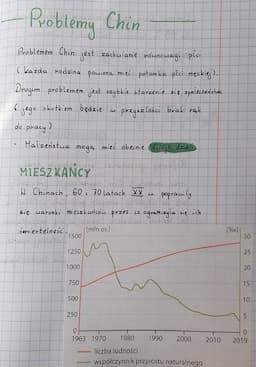 Problemy Chin
Problemem Chin jest zachwianie równowagi płci
(każda rodzina powinna mieć potomka płci męskiej).
Drugim problemem jest szybkie starzenie się społeczeństwa
(jego skutkiem będzie w przyszłości brak rąk
do pracy)
- Małżeństwa mogą mieć obecnie
MIESZKAŃCY
W Chinach, 60 i 70 latach XX w. poprawiły
się warunki mieszkańców przez co ograniczyła się ich
śmiertelność.
[mln os.] [‰]
1500 30
1250 25
1000 20
750 15
500 10
250 5
0 0
1963 1970 1980 1990 2000 2010 2019
liczba ludności
współczynnik przyrostu naturalnego